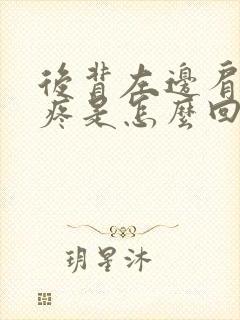 後背左邊肩
疼是怎麼回
玥星沐